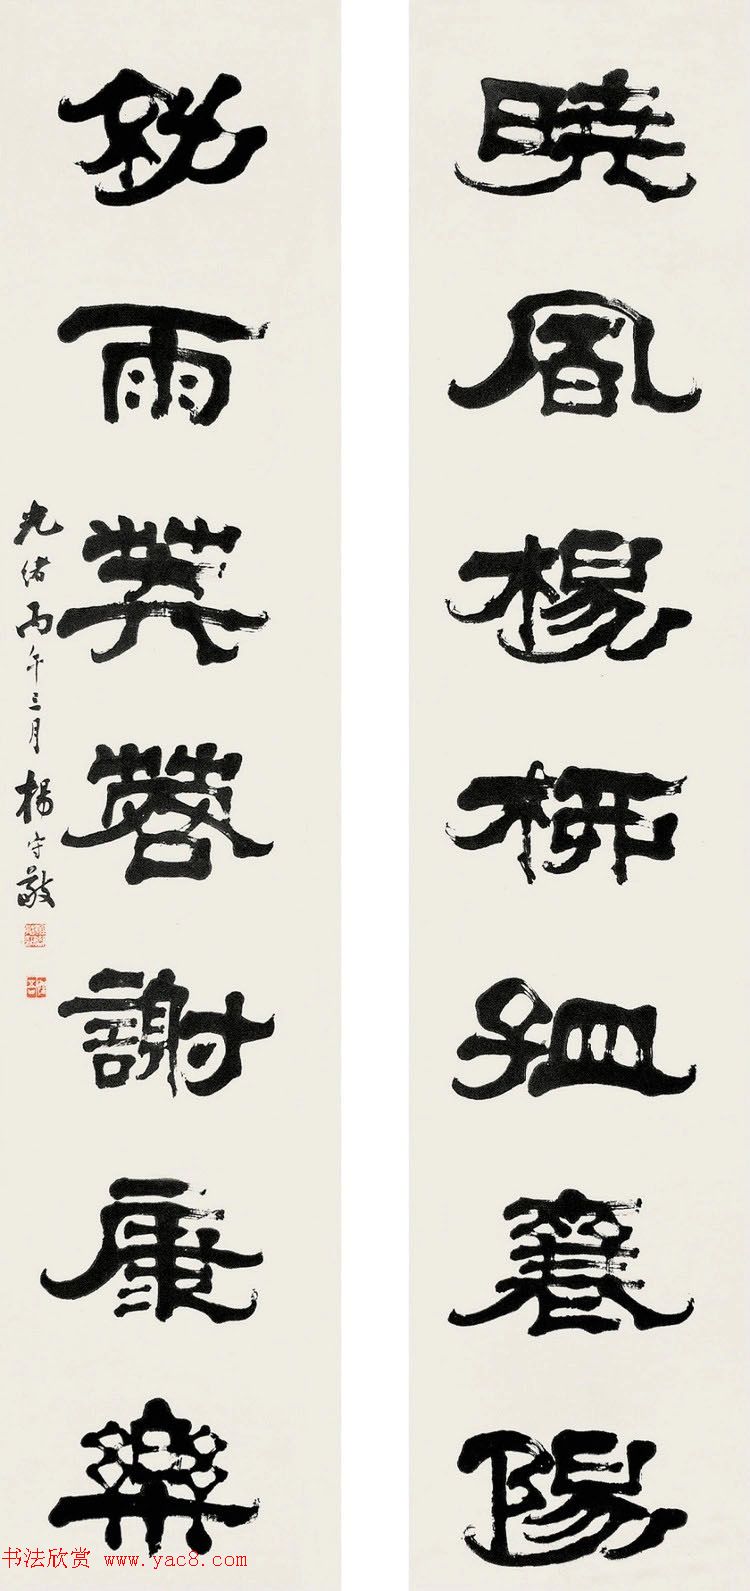 曉風楊柳孟襄陽
秋雨芙蓉謝康樂
光緒丙午三月楊守敬
书法欣赏 www.yac8.com